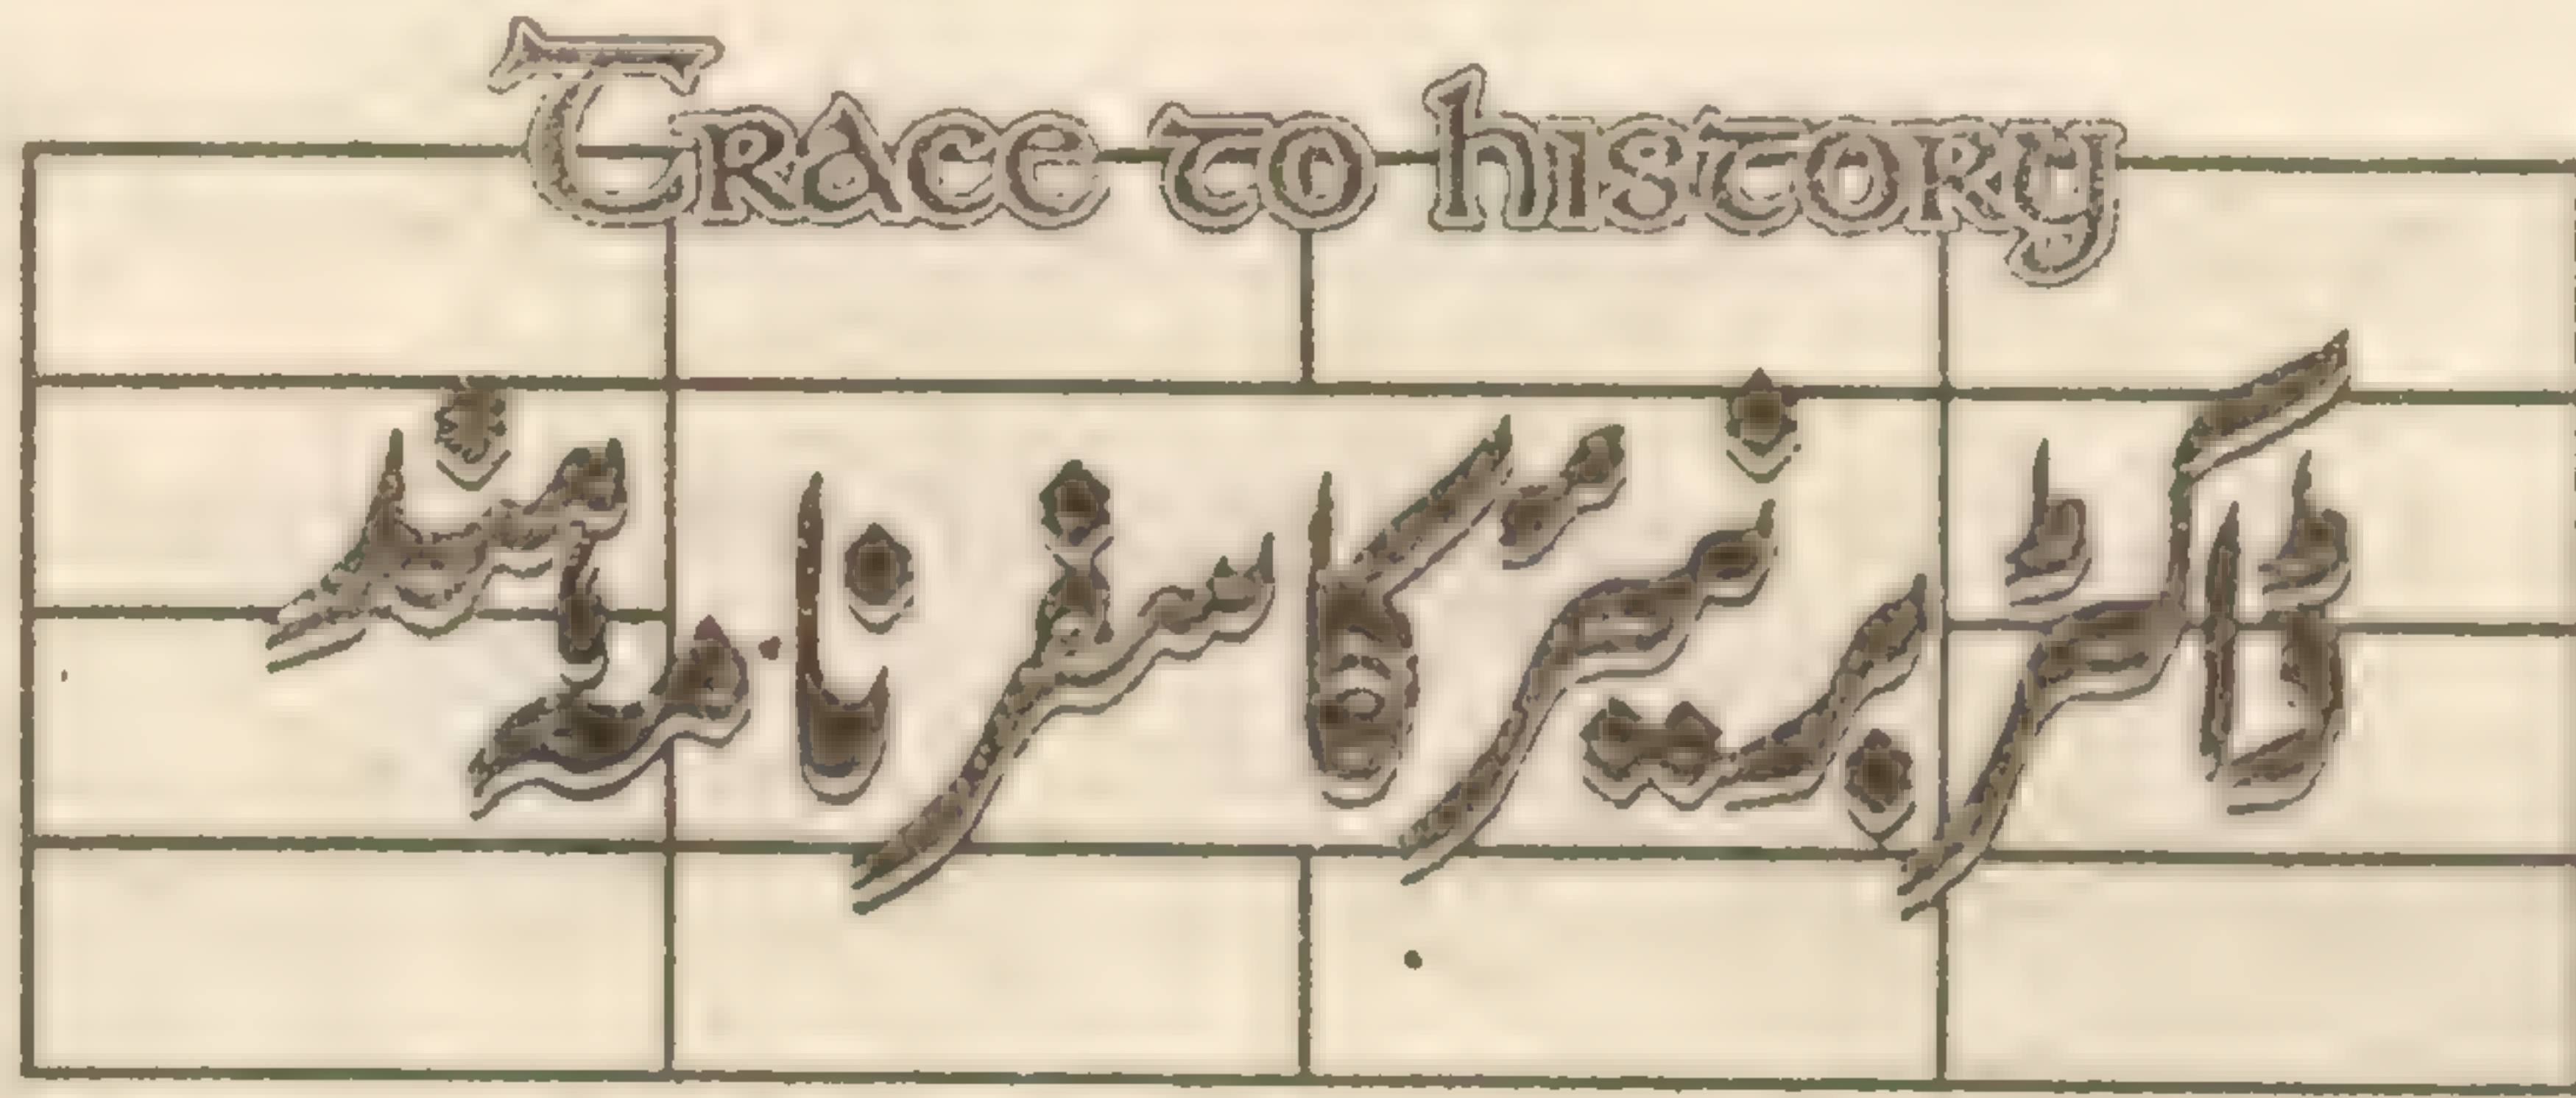 Trace to history
ڈاکٹر برنیئر کا سفر نامہ ہند